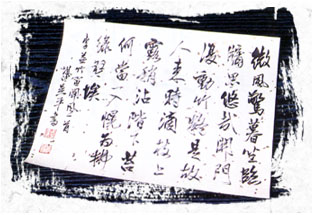 微風驚暮坐臨
牖思悠哉開門
復動竹疑是故
人来時滴枝上
露稍沾階下苔
何當一入幌爲拂
綠琴埃
李益